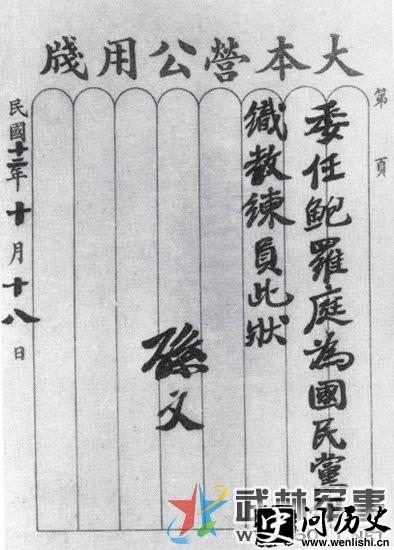 大本營公用牋
第 頁
委任鮑羅庭為國民黨
織教練員此狀
孫文
民國十二年十月十八日
武林军事
问历史
www.wenlishi.cn